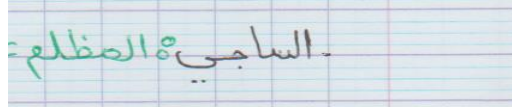 - الساجي: المظلم =